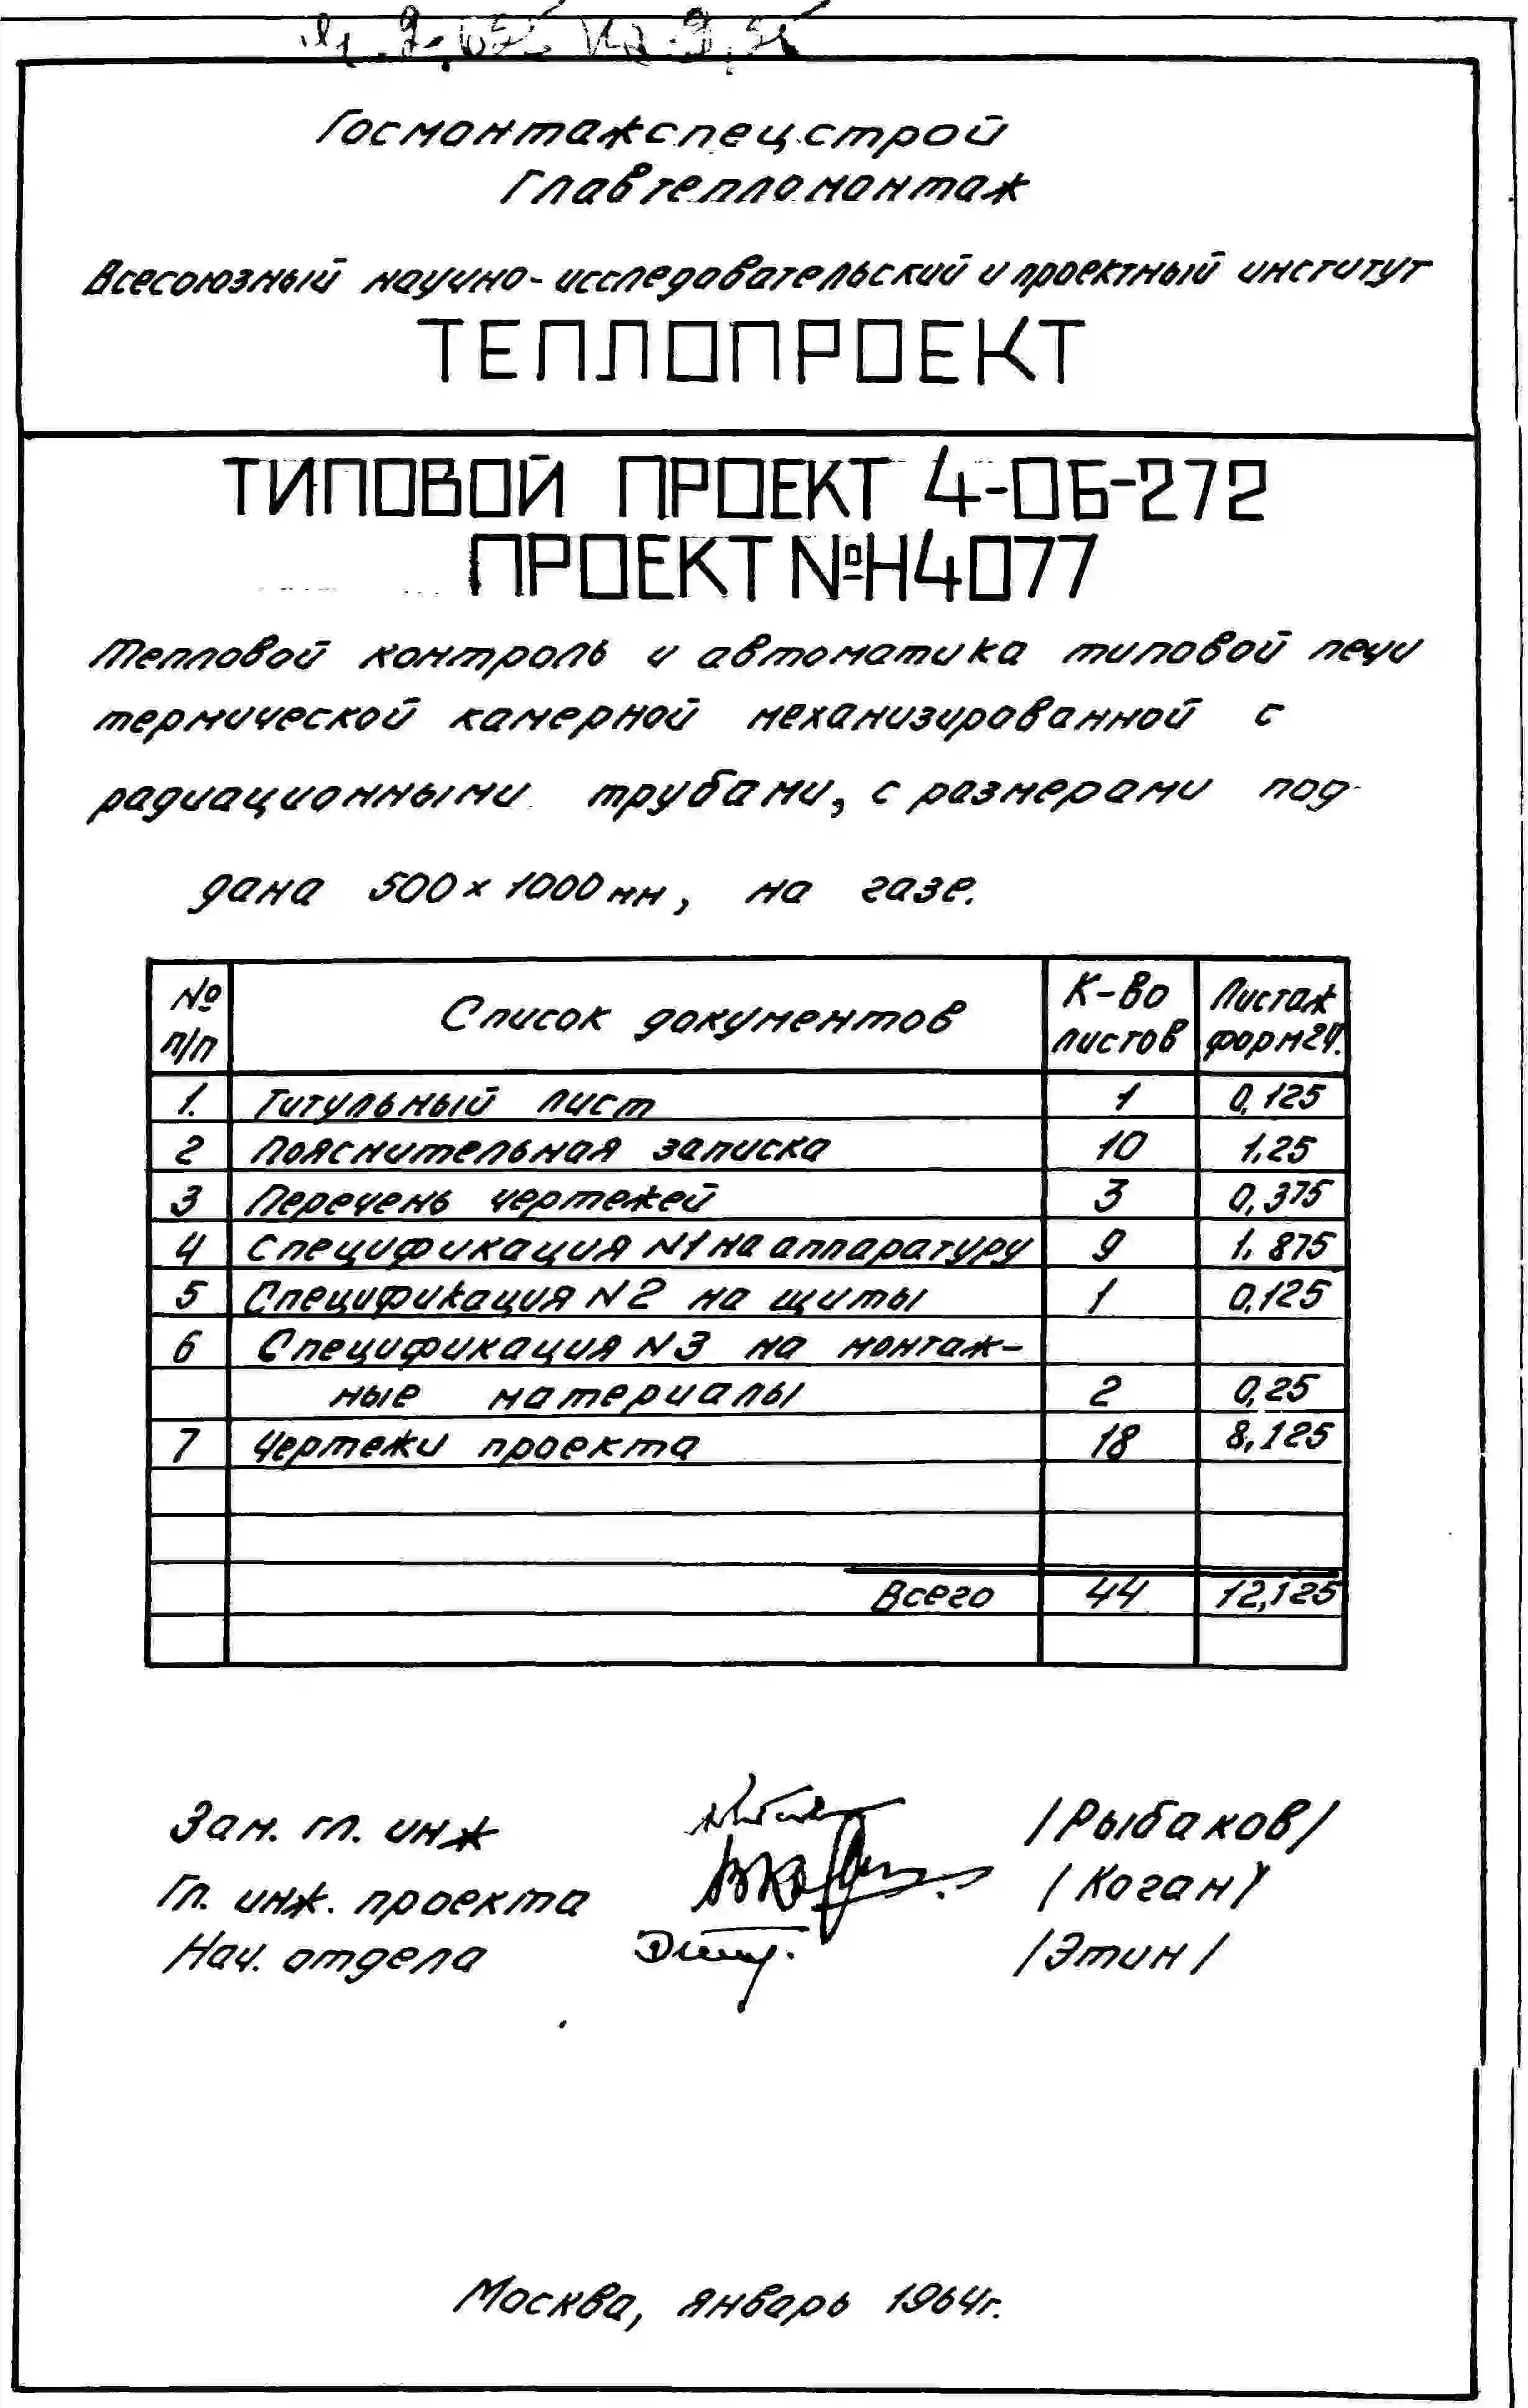 Госмонтажспецстрой
Главтепломонтаж
Всесоюзный научно-исследовательский и проектный институт
ТЕПЛОПРОЕКТ
ТИПОВОЙ ПРОЕКТ 4-ОБ-272
ПРОЕКТ №Н4077
Тепловой контроль и автоматика типовой печи
термической камерной механизированной с
радиационными трубами, с размерами под-
дана 500×1000мм, на газе.
№ п/п Список документов К-во листов Листаж форм 24.
1. Титульный лист 1 0,125
2 Пояснительная записка 10 1.25
3 Перечень чертежей 3 0,375
4 Спецификация N1 на аппаратуру 9 1.875
5 Спецификация N2 на щиты 1 0,125
6 Спецификация N3 на монтаж-
ные материалы 2 0,25
7 Чертежи проекта 18 8,125
Всего 44 12,125
Зам. гл. инж /Рыбаков/
Гл. инж. проекта /Коган/
Нач. отдела /Этин/
Москва, январь 1964г.